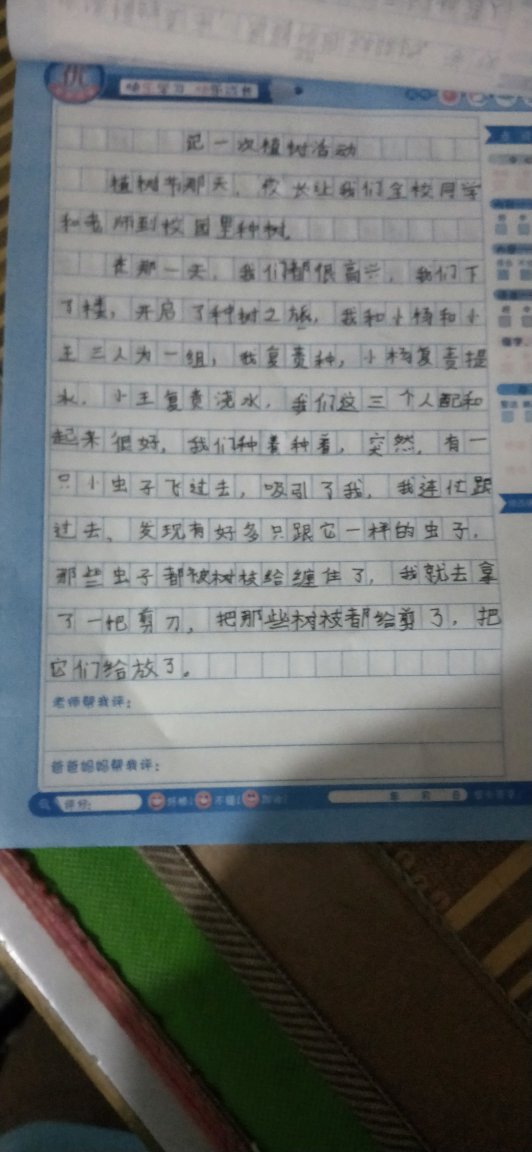 优
快乐学习 快乐成长
记一次植树活动
植树节那天，校长让我们全校同学
和老师到校园里种树。
在那一天，我们都很高兴，我们下
了楼，开启了种树之旅，我和小杨和小
王三人为一组，我复责种，小杨复责提
水，小王复责浇水，我们这三个人配和
起来很好，我们种着种着，突然，有一
只小虫子飞过去，吸引了我，我连忙跟
过去，发现有好多只跟它一样的虫子，
那些虫子都被树枝给缠住了，我就去拿
了一把剪刀，把那些树枝都给剪了，把
它们给放了。
老师帮我评：
爸爸妈妈帮我评：
评价：
不错！
年 月 日